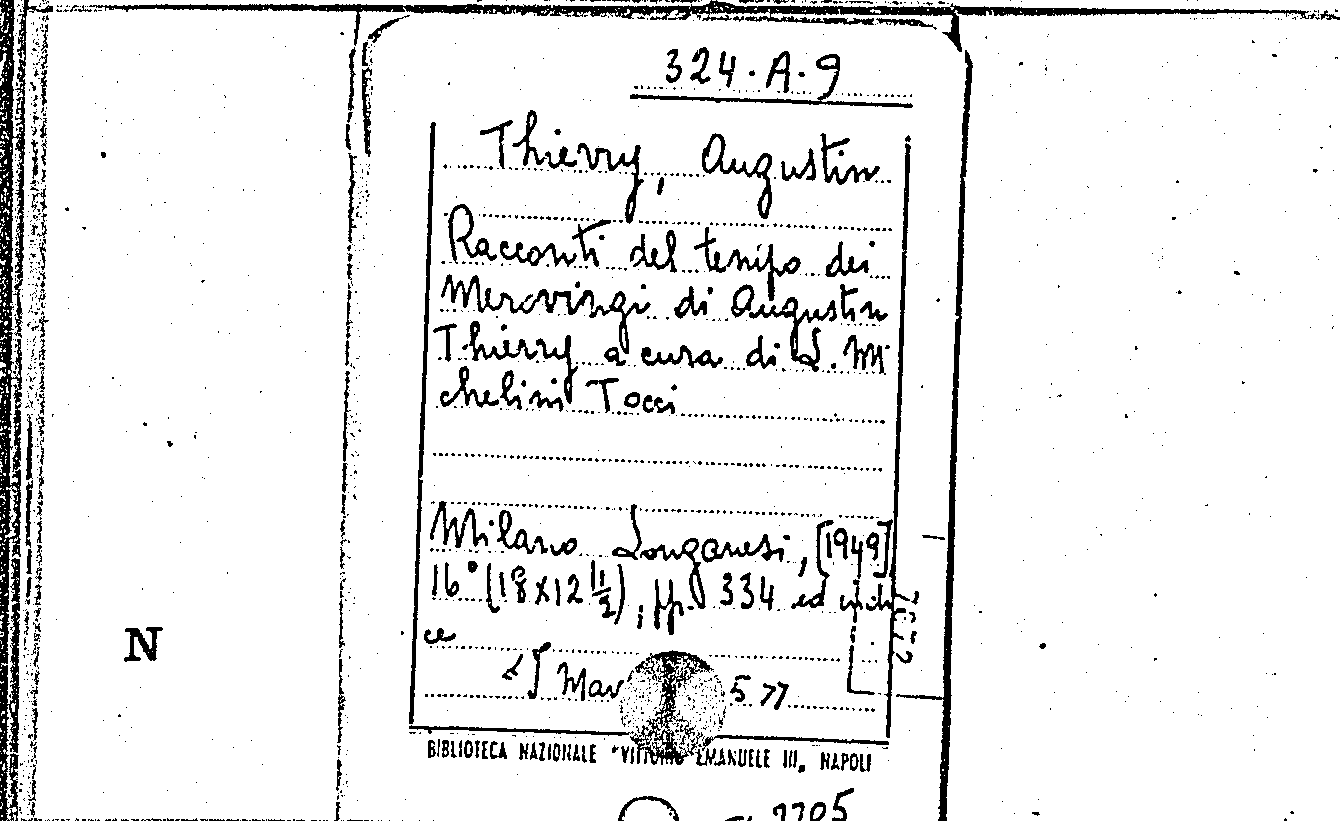 324.A.9
Thierry, Augustin
Racconti del tempo dei
Merovingi di Augustin
Thierry a cura di L. Mi
chelini Tocci
Milano Longanesi, [1949]
16° (18x12 1/2), pp. 334 ed indi
ce
N
BIBLIOTECA NAZIONALE "VITTORIO EMANUELE III„ NAPOLI